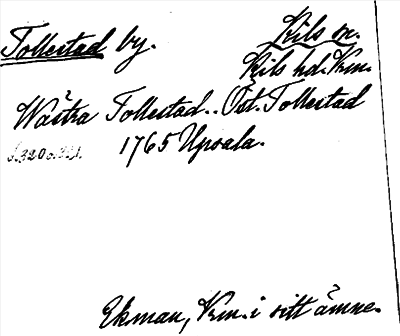 Tollestad by. Kils sn.
Kils hd. Vrm.
Wästra Tollestad.. Öst. Tollestad
s. 320 o. 321. 1765 Upsala.
Ekman, Vrm. i sitt ämne.